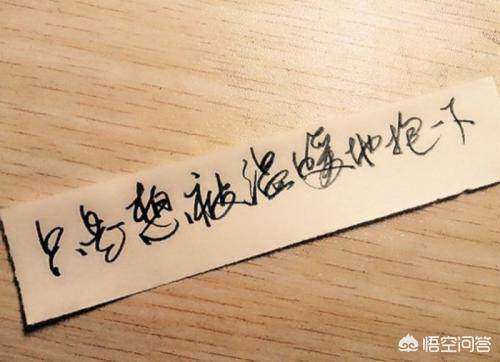 只是想被温暖地抱一下
悟空问答